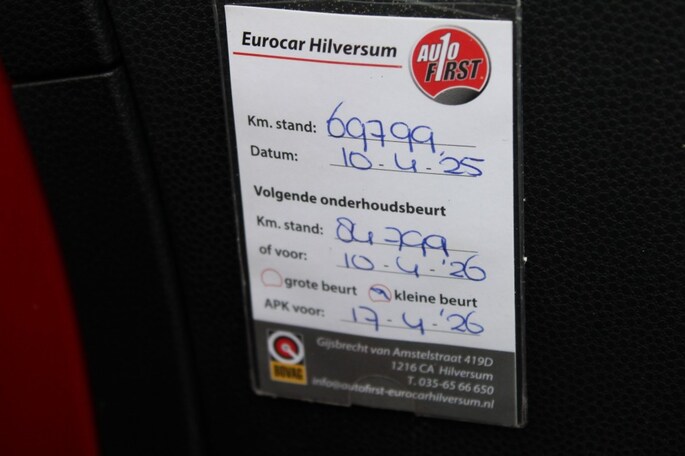 Eurocar Hilversum
AUTO
F1RST
Km. stand: 69799
Datum: 10-4-'25
Volgende onderhoudsbeurt
Km. stand: 84799
of voor: 10-4-'26
grote beurt kleine beurt
APK voor: 17-4-'26
Gijsbrecht van Amstelstraat 419D
1216 CA Hilversum
T. 035-65 66 650
info@autofirst-eurocarhilversum.nl
BOVAG